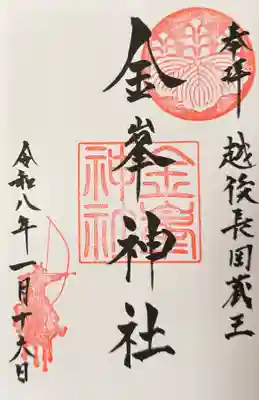 奉拝
越後長岡蔵王
金峯神社
金峯
神社
令和八年一月十六日